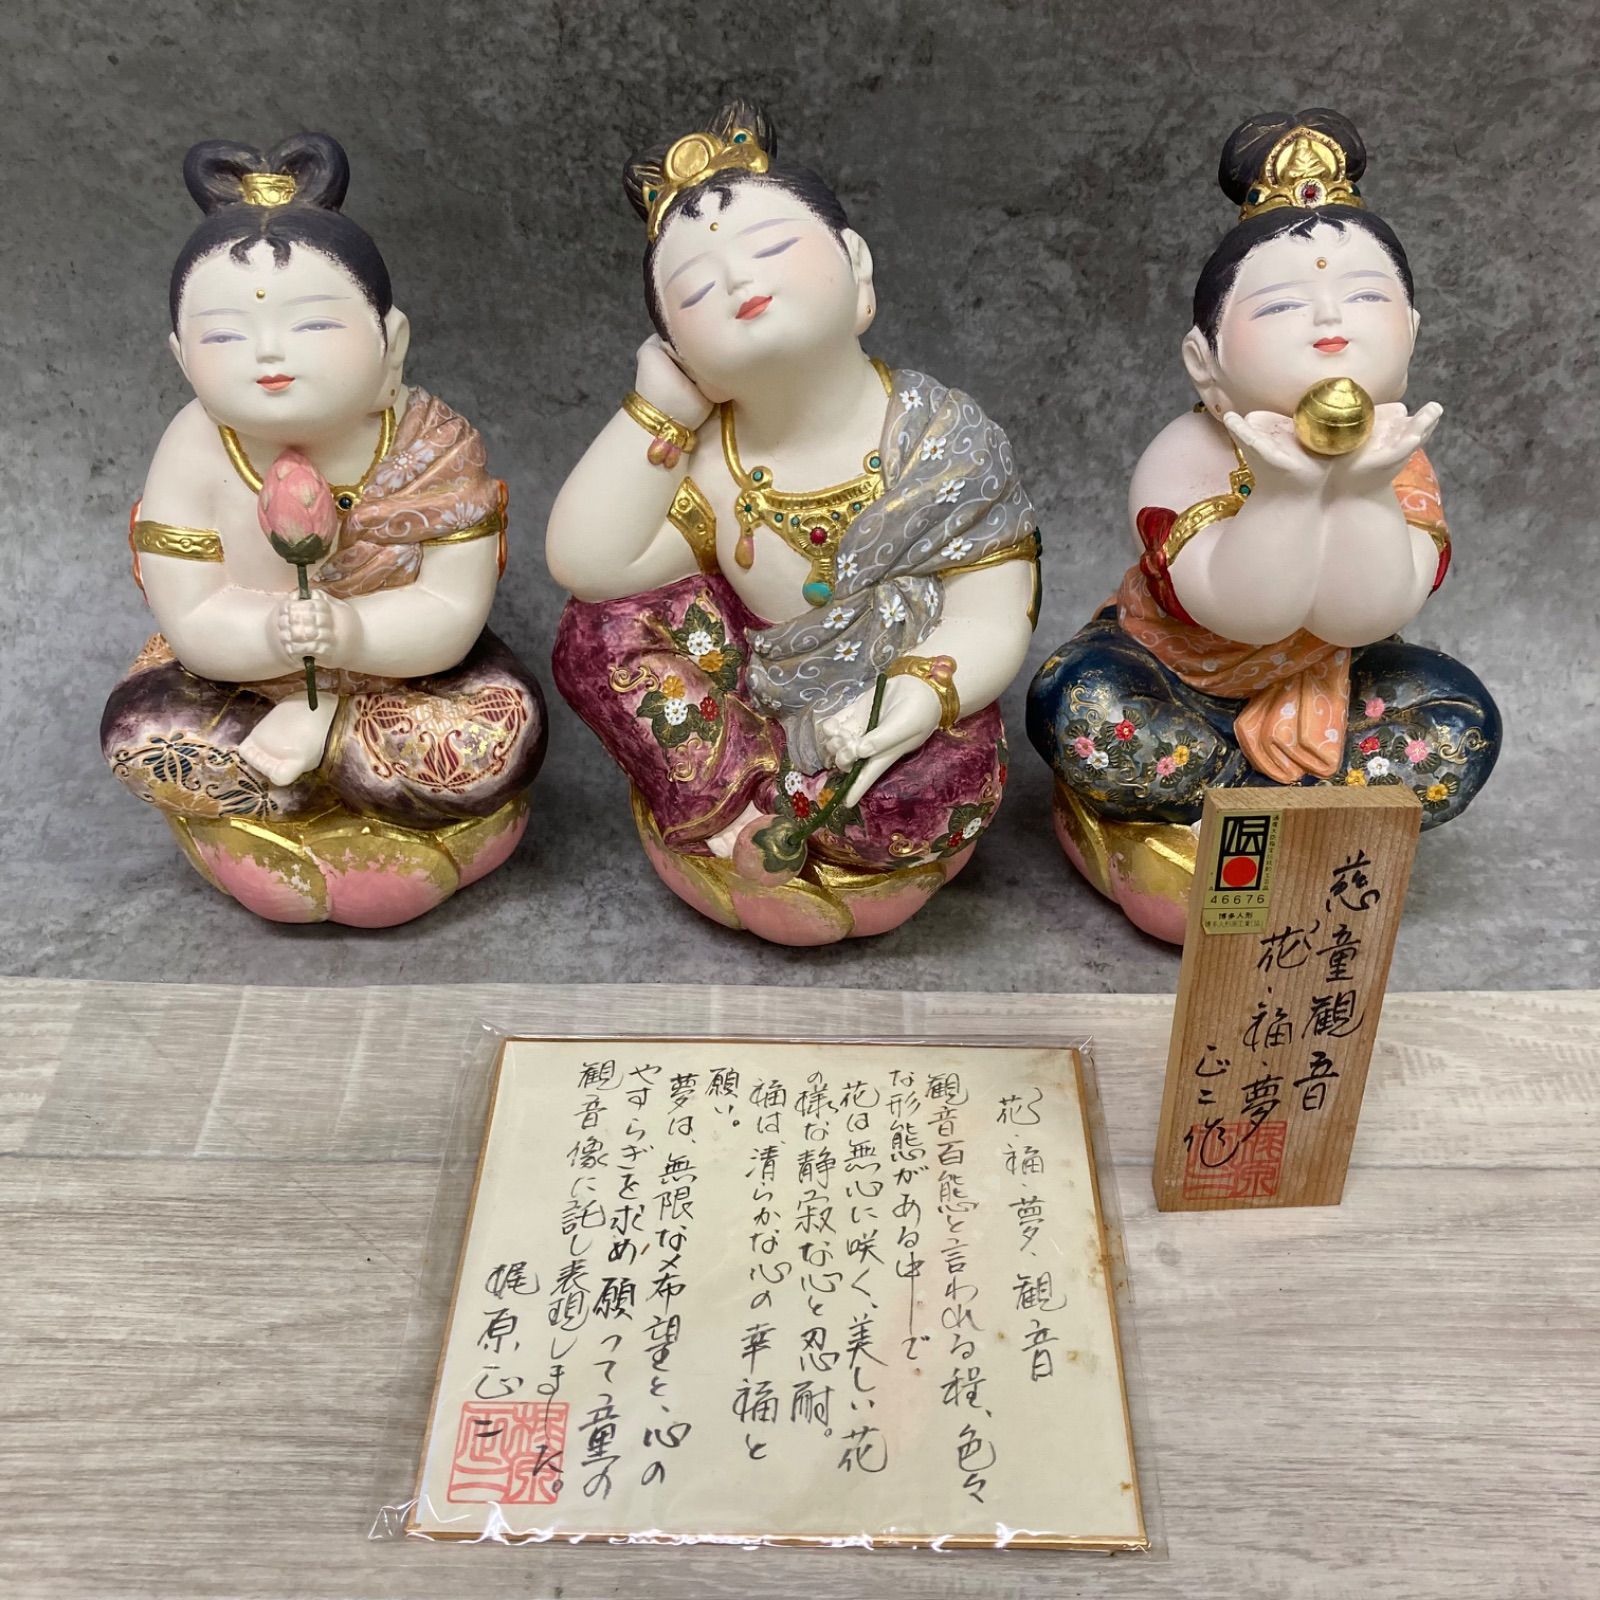 花・福・夢、観音
観音百態と言われる程、色々
な形態がある中で
花は無心に咲く、美しい花
の様な静寂な心と忍耐。
福は、清らかな心の幸福と
願い。
夢は、無限な希望と、心の
やすらぎを求め願って童の
観音像に託し表現しました。
梶原正二
慈童観音
花・福・夢
正二作
46676
博多人形